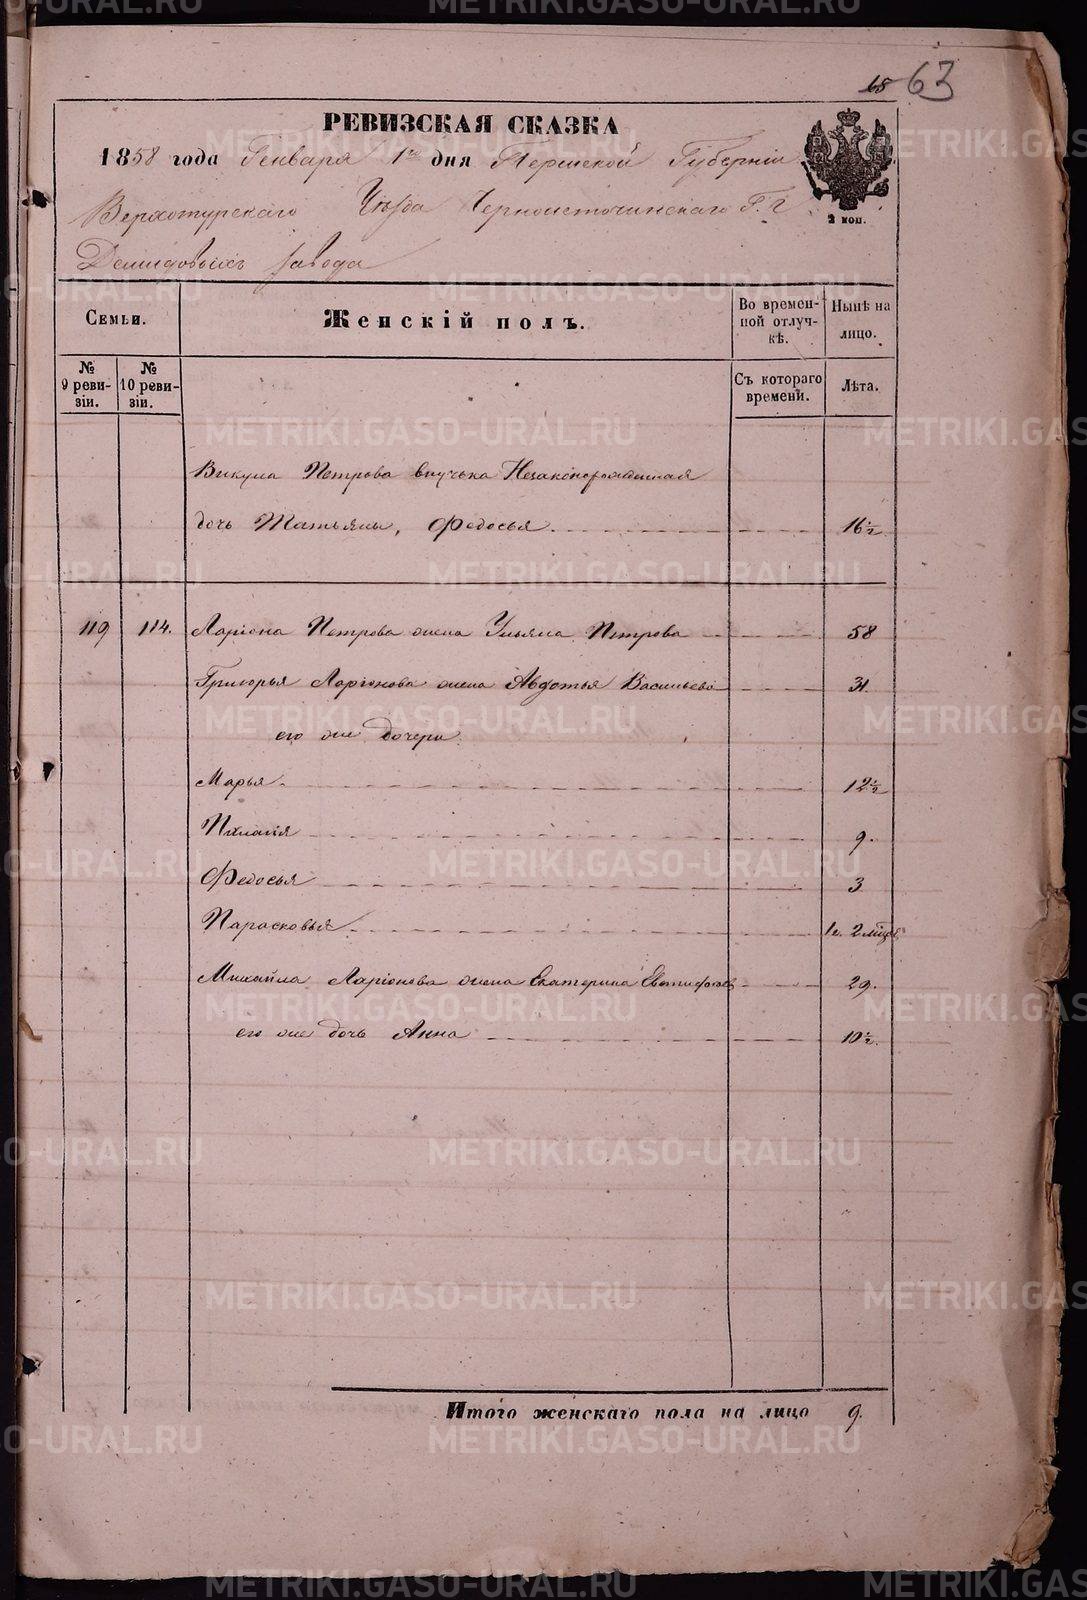 63
РЕВИЗСКАЯ СКАЗКА
1858 года Генваря 1го дня Пермской Губерніи
Верхотурскаго Уѣзда Черноисточинскаго Г. г
Демидовыхъ завода
2 коп.
Семьи.
Женскій полъ.
Во времен-
ной отлуч-
кѣ.
Нынѣ на
лицо.
№
9 реви-
зіи.
№
10 реви-
зіи.
Съ котораго
времени.
Лѣта.
Викула Петрова внучька Незаконорожденная
дочь Татьяны, Федосья 16 1/2
119 114. Ларіона Петрова жена Ульяна Петрова 58
Григорья Ларіонова жена Авдотья Васильева 31.
его же дочери
Марья 12 1/2
Пилагія 9.
Федосья 3
Парасковья 1 г. 2 мѣсеца
Михайла Ларіонова жена Екатерина 29.
его же дочь Анна 10 1/2.
Итого женскаго пола на лицо 9.
METRIKI.GASO-URAL.RU